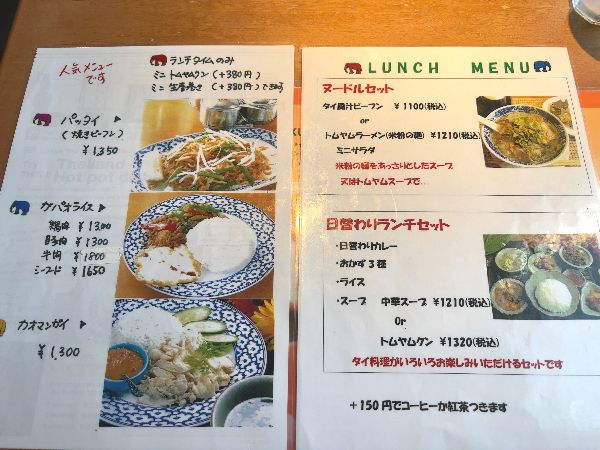 人気メニュー
です
ランチタイムのみ
ミニ トムヤムクン (+380円)
ミニ 生春巻き (+380円)
パッタイ
(焼きビーフン)
¥1,350
ガパオライス
鶏肉 ¥1300
豚肉 ¥1300
牛肉 ¥1800
シーフード ¥1650
カオマンガイ
¥1,300
LUNCH MENU
ヌードルセット
タイ風汁ビーフン ¥1100(税込)
or
トムヤムラーメン(米粉の麺) ¥1210(税込)
ミニサラダ
米粉の麺をあっさりとしたスープ
又はトムヤムスープで…
日替わりランチセット
・日替わりカレー
・おかず3種
・ライス
・スープ 中華スープ ¥1210(税込)
Or
トムヤムクン ¥1320(税込)
タイ料理がいろいろお楽しみいただけるセットです
+150円でコーヒーか紅茶つきます